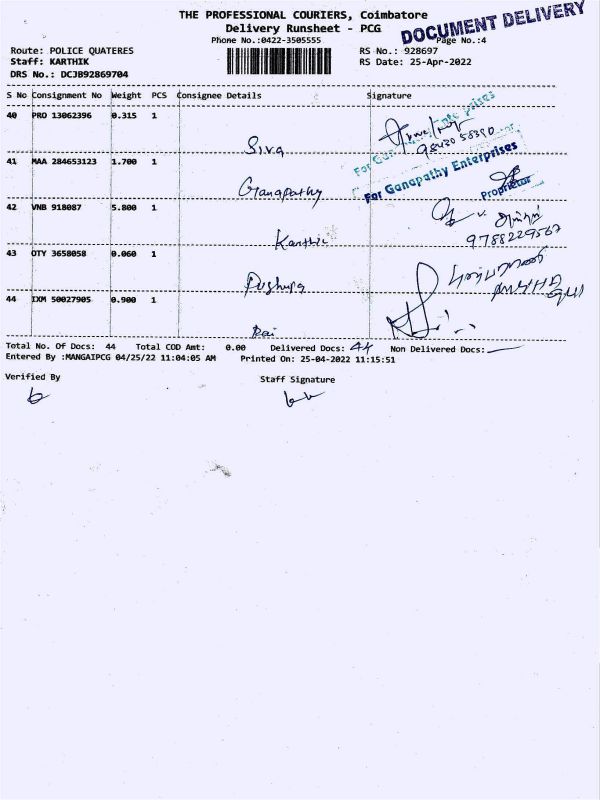 THE PROFESSIONAL COURIERS, Coimbatore
DOCUMENT DELIVERY
Delivery Runsheet - PCG
Phone No.:0422-3505555
Page No.:4
Route: POLICE QUATERES
RS No.: 928697
Staff: KARTHIK
RS Date: 25-Apr-2022
DRS No.: DCJB92869704
S No Consignment No Weight PCS Consignee Details Signature
40 PRO 13062396 0.315 1
Siva
98420 58390
41 MAA 284653123 1.700 1
Ganapathy
For Ganapathy Enterprises
Proprietor
42 VNB 918087 5.800 1
Karthic
9788229567
43 OTY 3658058 0.060 1
Pushpa
44 IXM 50027905 0.900 1
Rai
Total No. Of Docs: 44 Total COD Amt: 0.00 Delivered Docs: 44 Non Delivered Docs:
Entered By :MANGAIPCG 04/25/22 11:04:05 AM Printed On: 25-04-2022 11:15:51
Verified By
Staff Signature